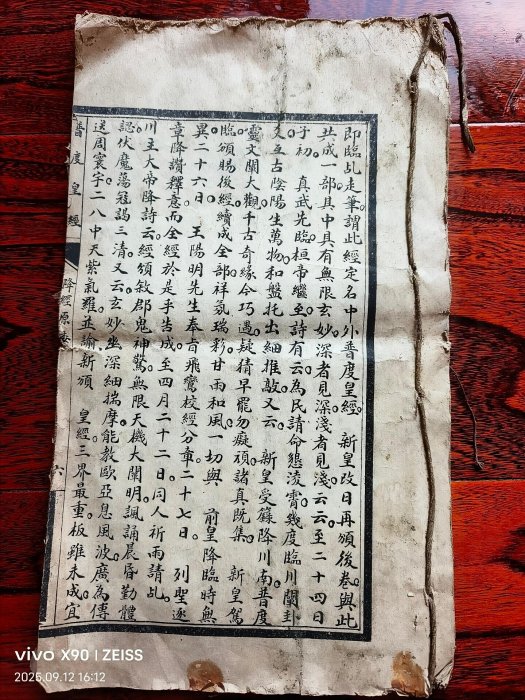 即臨乩走筆謂此經定名中外普度皇經。　新皇改日再頒後卷與此
共成一部其中具有無限玄妙深者見深淺者見淺云云至二十四日
子初。　真武先臨桓帝繼至詩有云為民請命懇淩霄幾度臨川闡卦
爻亙古陰陽生萬物和盤托出細推敲又云。　新皇受籙降川南普度
靈文闡大觀千古奇緣今巧遇疑猜早罷勿癡頑諸真既集　新皇駕
臨頒賜後經續成全部祥氛瑞彩甘雨和風一切與　前皇降臨時無
異二十六日。　王陽明先生奉旨飛鸞校經分章二十七日。　列聖逐
章降讚釋意而全經於是乎告成至四月二十二日同人祈雨請乩。
川主大帝降詩云經頒敘郡鬼神驚無限天機大闡明諷誦晨昏勤體
認伏魔蕩寇謁三清又云玄妙坐深細揣摩能教歐亞息風波廣為傳
送周寰宇二八中天紫氣羅並諭新頒　皇經三界最重板雖未成宜
普度皇經
降經原
六
vivo X90 | ZEISS
2025.09.12 16:12